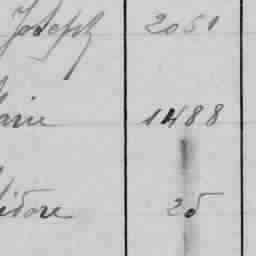 Joseph 2051
arie 1488
sidore 25